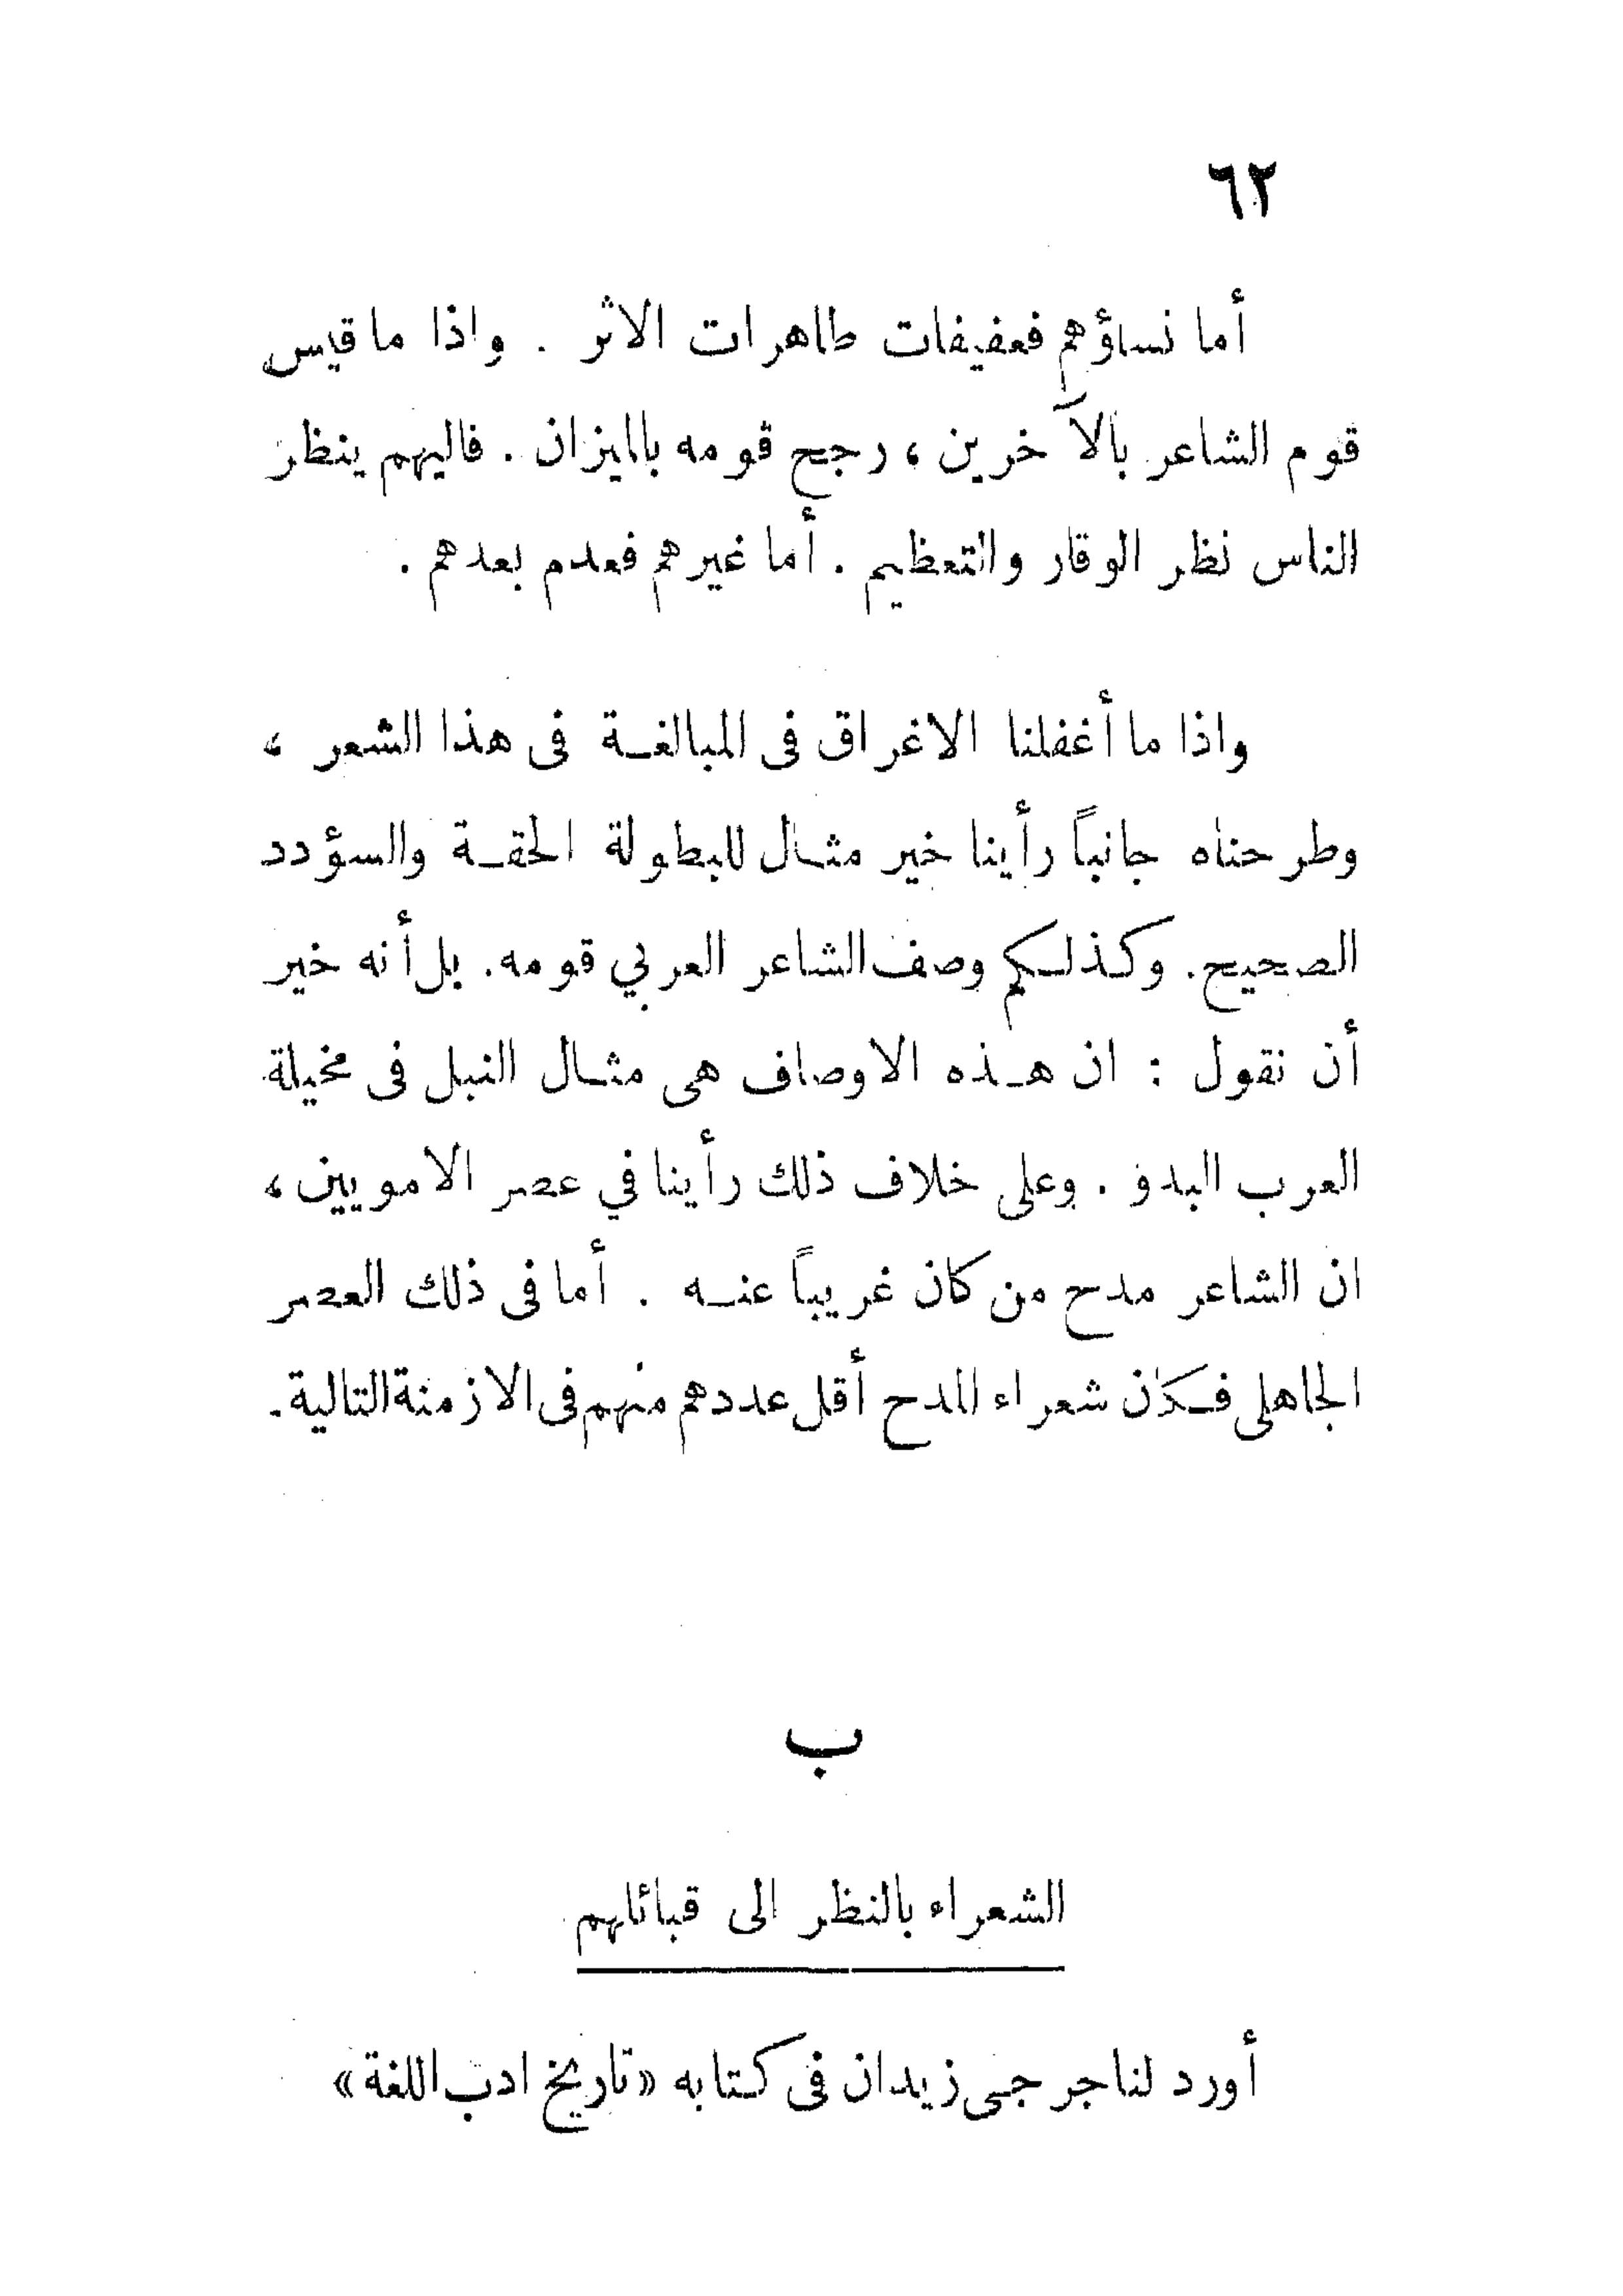 ٦٢
أما نساؤهم فعفيفات طاهرات الاثر . واذا ما قيس
قوم الشاعر بالآخرين ، رجح قومه بالميزان . فاليهم ينظر
الناس نظر الوقار والتعظيم . أما غيرهم فعدم بعدهم .
واذا ما أغفلنا الاغراق فى المبالغة فى هذا الشعر ،
وطرحناه جانباً رأينا خير مثال للبطولة الحقة والسؤدد
الصحيح. وكذلكم وصف الشاعر العربي قومه. بل أنه خير
أن نقول : ان هذه الاوصاف هى مثال النبل فى مخيلة
العرب البدو . وعلى خلاف ذلك رأينا في عصر الامويين ،
ان الشاعر مدح من كان غريباً عنه . أما فى ذلك العصر
الجاهلى فكان شعراء المدح أقل عددهم منهم فى الازمنة التالية.
ب
الشعراء بالنظر الى قبائلهم
أورد لنا جرجى زيدان فى كتابه «تاريخ ادب اللغة»